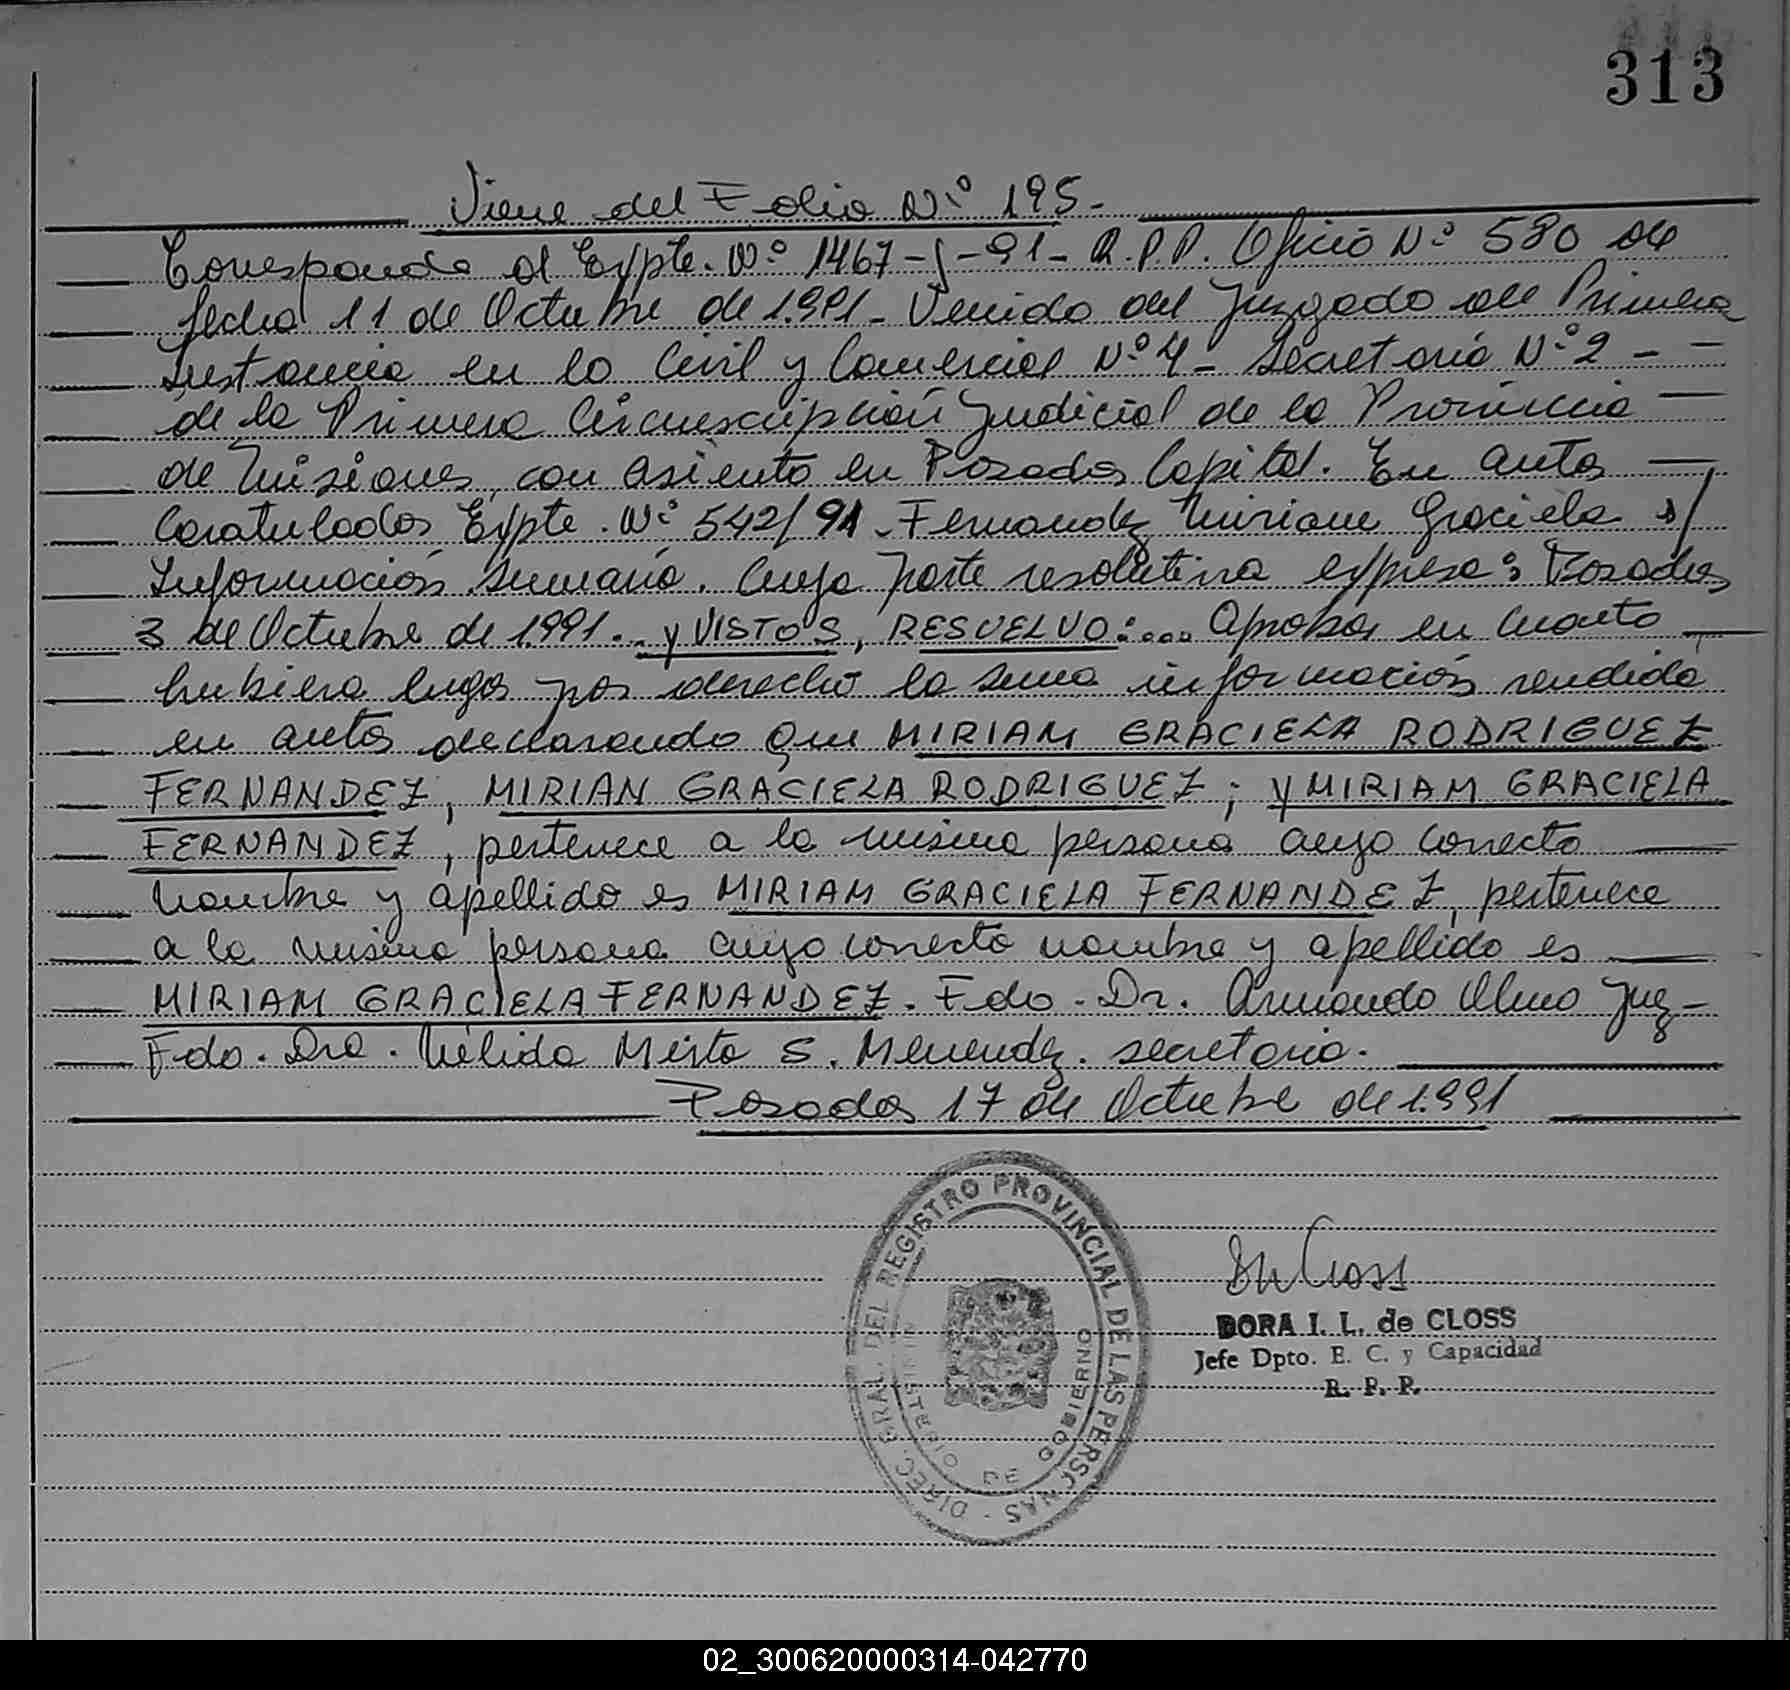 313
Viene del Folio Nº 195.-
Corresponde al Expte. Nº 1467-J-91- R.P.P. Oficio Nº 580 de
fecha 11 de Octubre de 1.991- Venido del Juzgado de Primera
Instancia en lo Civil y Comercial Nº 4- Secretaria Nº 2 - -
de la Primera Circunscripción Judicial de la Provincia
de Misiones, con asiento en Posadas Capital. En autos
Caratulados Expte. Nº 542/91 - Fernandez Miriam Graciela s/
Información Sumaria. Cuya parte resolutiva expresa: Posadas
3 de Octubre de 1.991... y VISTOS, RESUELVO:... Aprobar en cuanto
hubiera lugar por derecho la suma información rendida
en autos declarando que MIRIAM GRACIELA RODRIGUEZ
FERNANDEZ, MIRIAN GRACIELA RODRIGUEZ; y MIRIAM GRACIELA
FERNANDEZ, pertenece a la misma persona cuyo correcto
nombre y apellido es MIRIAM GRACIELA FERNANDEZ, pertenece
a la misma persona cuyo correcto nombre y apellido es
MIRIAM GRACIELA FERNANDEZ. Fdo. Dr. Armando Olmo Juez-
Fdo. Dra. Nélida Mirta S. Menendez. secretaria.
Posadas 17 de Octubre de 1.991
DIREC. GRAL. DEL REGISTRO PROVINCIAL DE LAS PERSONAS
MINISTERIO DE GOBIERNO
DORA I. L. de CLOSS
Jefe Dpto. E. C. y Capacidad
R. P. P.
02_300620000314-042770